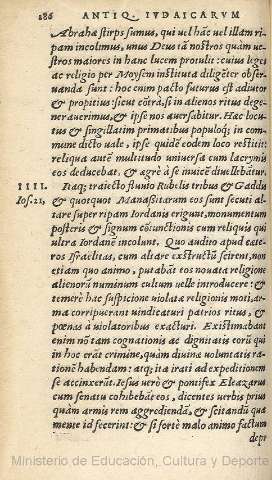 286 ANTIQ. IVDAICARVM
Abrahæ stirps sumus, qui uel hãc uel illam ri-
pam incolimus, unus Deus tã nostros quàm ue-
stros maiores in hanc lucem protulit: cuius leges
ac religio per Moysem instituta diligẽter obser-
uanda sunt: hoc enim pacto futurus est adiutor
& propitius: sicut cõtrà, si in alienos ritus dege-
nerauerimus, & ipse nos auersabitur. Hac locu-
tus & singillatim primatibus populoq́; in com-
mune dicto uale, ipse quidẽ eodem loco restitit:
reliqua autẽ multitudo uniuersa cum lacrymis
eos deducebat, & ægrè à se inuicẽ diuellebãtur.
IIII. Itaq; traiecto fluuio Rubelis tribus & Gaddis
Ios. 22, & quotquot Manassitarum eos sunt secuti al-
tare super ripam Iordanis erigunt, monumentum
posteris & signum cõiunctionis cum reliquis qui
ultra Iordanẽ incolunt. Quo audito apud cæte-
ros Israelitas, cum altare exstructũ scirent, non
etiam quo animo, putabãt eos nouata religione
alienorũ numinum cultum uelle introducere: &
temerè hac suspicione uiolatæ religionis moti, ar-
ma corripuerant uindicaturi patrios ritus, &
pœnas à uiolatoribus exacturi. Existimabant
enim nõ tam cognationis ac dignitatis eorũ qui
in hoc erãt crimine, quàm diuinæ uoluntatis ra-
tionẽ habendam: atq; ita irati ad expeditionem
se accinxerũt. Iesus uerò & pontifex Eleazarus
cum senatu cohibebãt eos, dicentes uerbis prius
quàm armis rem aggrediendã, & scitandũ qua
mente id fecerint: & si fortè malo animo factum
depre
Ministerio de Educación, Cultura y Deporte